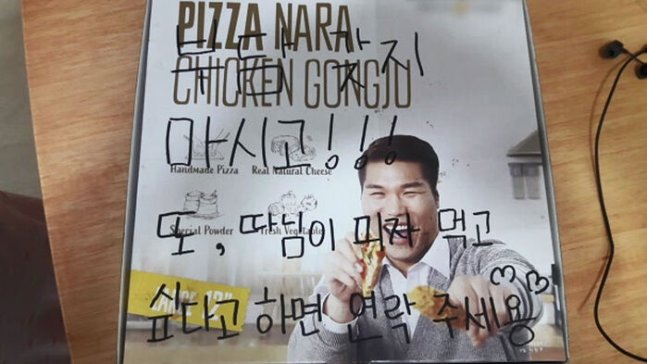 PIZZA NARA
부담 갖지
CHICKEN GONGJU
마시고!!!
Handmade Pizza Real Natural Cheese
또, 따님이 피자 먹고
Special Powder Fresh Vegetable
싶다고 하면 연락 주세용